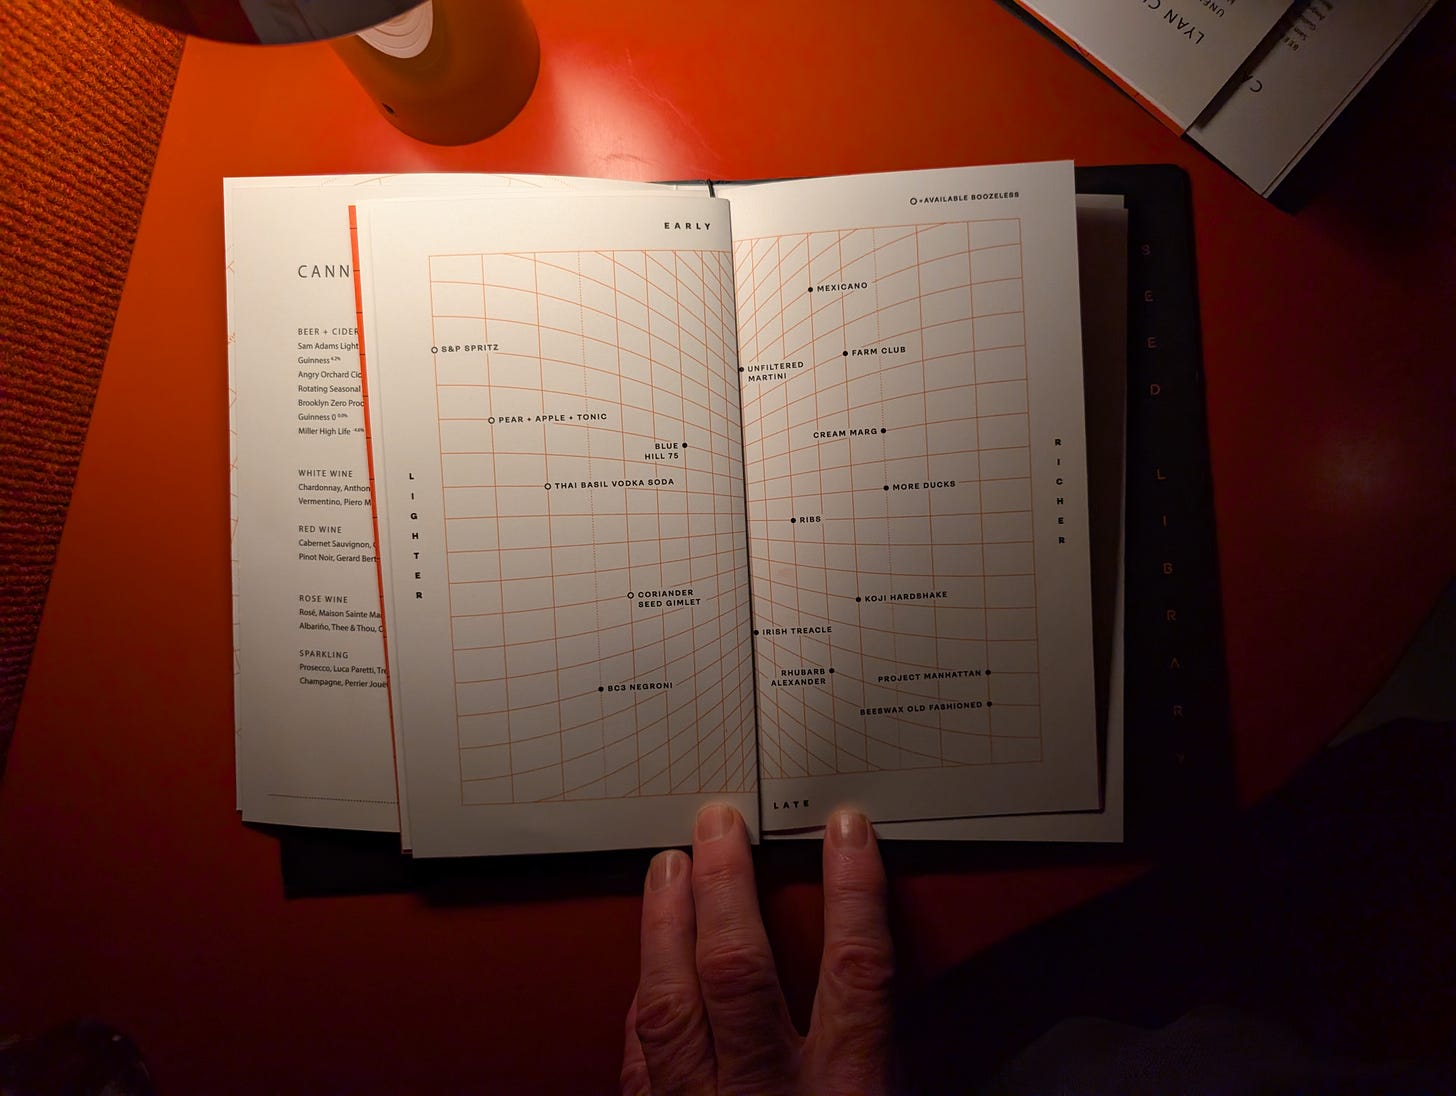 CANN
BEER + CIDER
Sam Adams Light
Guinness 4.2%
Angry Orchard
Rotating Seasonal
Brooklyn Zero
Guinness 0 0.0%
Miller High Life
WHITE WINE
Chardonnay,
Vermentino, Piero
RED WINE
Cabernet Sauvignon,
Pinot Noir, Gerard
ROSE WINE
Rosé, Maison Sainte
Albariño, Thee & Thou,
SPARKLING
Prosecco, Luca Paretti,
Champagne, Perrier
EARLY
S&P SPRITZ
PEAR + APPLE + TONIC
BLUE
HILL 75
THAI BASIL VODKA SODA
CORIANDER
SEED GIMLET
BC3 NEGRONI
LIGHTER
=AVAILABLE BOOZELESS
MEXICANO
FARM CLUB
UNFILTERED
MARTINI
CREAM MARG
MORE DUCKS
RIBS
KOJI HARDSHAKE
IRISH TREACLE
RHUBARB
ALEXANDER
PROJECT MANHATTAN
BEESWAX OLD FASHIONED
RICHER
LATE
SEED LIBRARY
LYAN